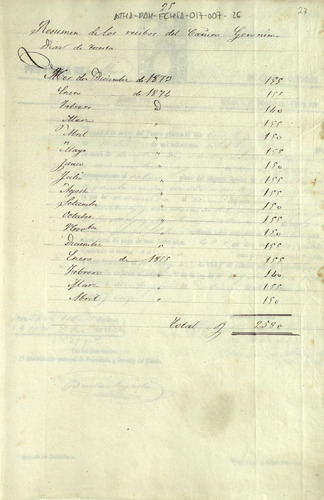 25
ATHA-DAH-FCHISA-017-007-26
27
Resumen de los recibos del Cañero Geronimo
Diaz de renta.
Mes de Diciembre de 1873 155
Enero de 1874 155
Febrero D 140
Marzo " 155
Abril " 150
Mayo " 155
Junio " 150
Julio " 155
Agosto " 155
Setiembre " 150
Octubre " 155
Novbre " 150
Diciembre " 155
Enero de 1875 155
Febrero " " 140
Marzo " 155
Abril " 150
Total 2580